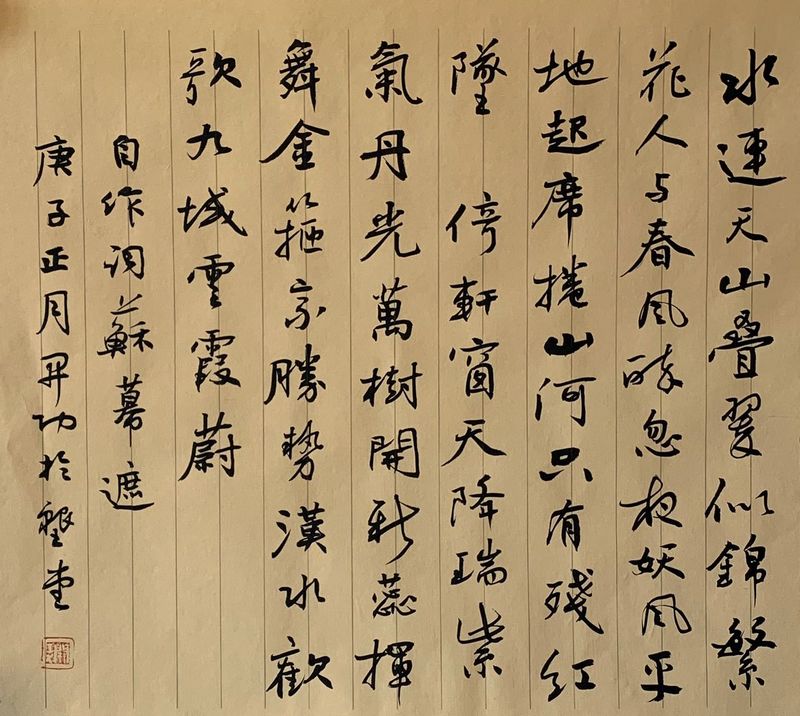 水連天山叠翠似錦繁
花人与春風醉忽夜妖風平
地起席捲山河只有殘紅
墜 倚軒窗天降瑞紫
氣丹光萬樹開新蕊揮
舞金箍勝勢漢水歡
歌九域雲霞蔚
自作词蘇幕遮
庚子正月功於堂